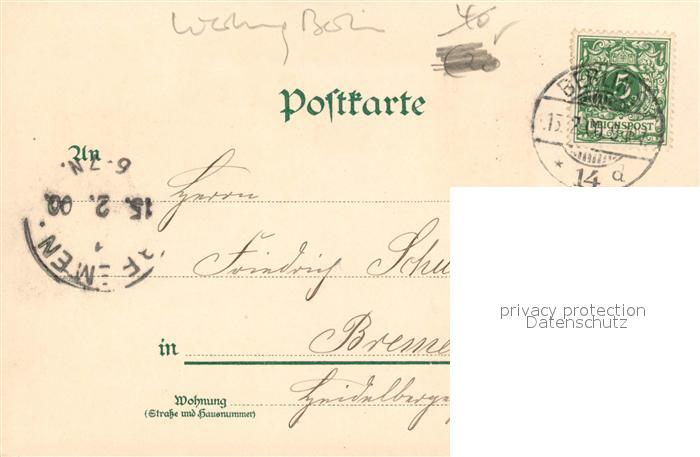 Werbung Berlin
40,
Postkarte
5
REICHSPOST
BERLIN
14 d
An
Herrn
6-7N.
15. 2. 00.
1
BREMEN.
Friedrich Schu
in Breme
Wohnung
(Straße und Hausnummer)
Heidelberge
privacy protection
Datenschutz